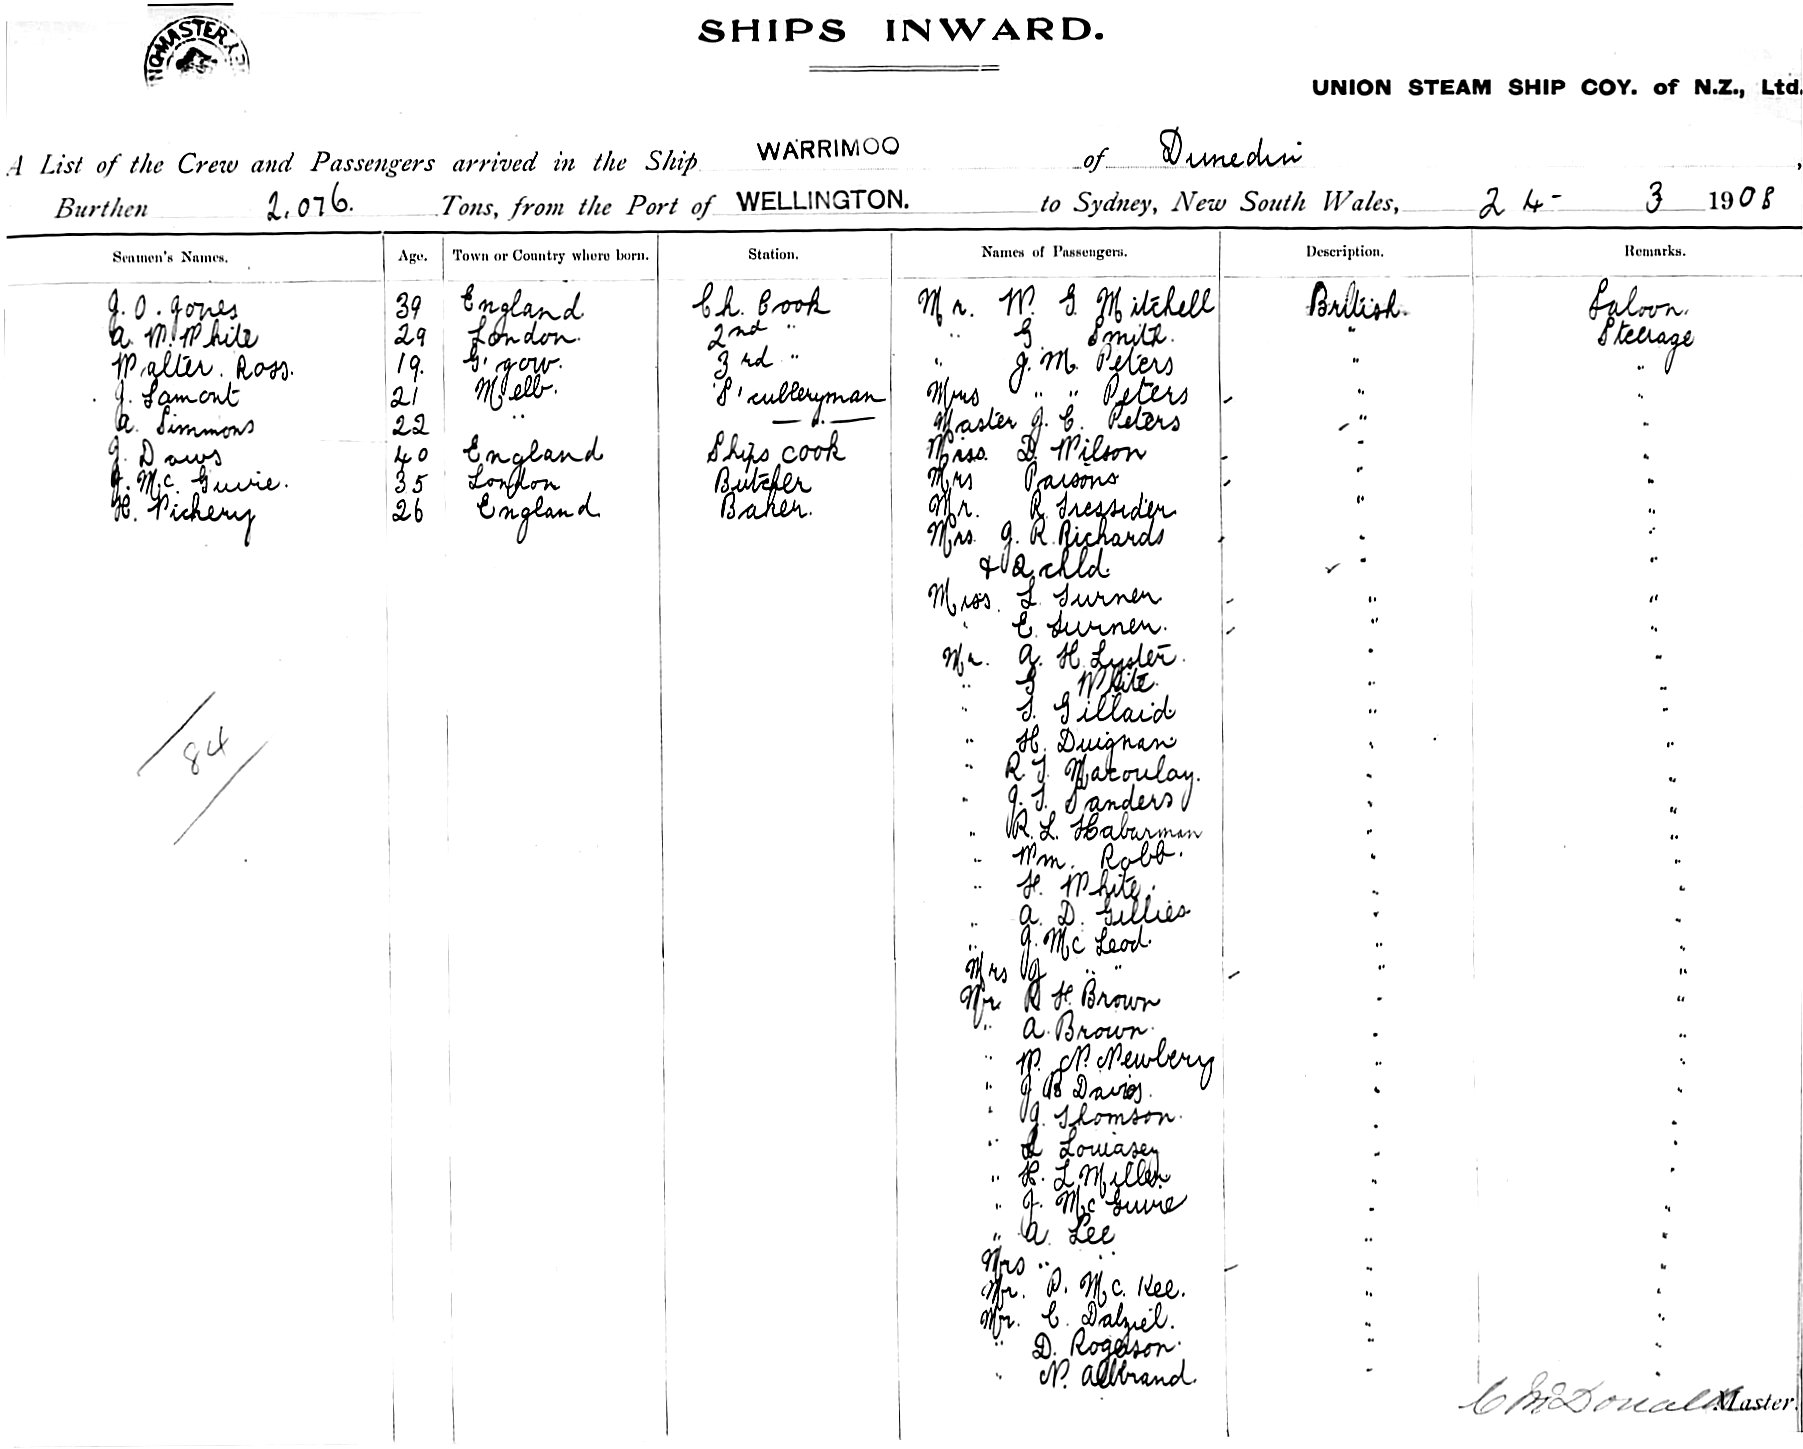 SHIPS INWARD.
UNION STEAM SHIP COY. of N.Z., Ltd.
A List of the Crew and Passengers arrived in the Ship WARRIMOO of Dunedin,
Burthen 2,076. Tons, from the Port of WELLINGTON. to Sydney, New South Wales, 24- 3 1908
Seamen's Names. Age. Town or Country where born. Station. Names of Passengers. Description. Remarks.
J. O. Jones 39 England Ch. Cook Mr. W. G. Mitchell British. Saloon.
A. W. White 29 London. 2nd " " G Smith. " Steerage
Walter. Ross. 19. G'gow. 3rd " " J. M. Peters " "
J. Lamont 21 Melb. S'culleryman Mrs " " Peters " "
A. Simmons 22 " — " — Master J. C. Peters " "
J. Daws 40 England Ships cook Miss. D. Wilson " "
J. Mc. Guire. 35 London Butcher Mrs Parsons " "
H. Vickery 26 England. Baker. Mr. R. Tressider. " "
Mrs. J. R. Richards " "
& 2 chld. " "
Miss. L. Turner " "
" E. Turner. " "
Mr. A. H. Lyster. " "
" G White. " "
" T. Gillard " "
" H. Duignan " "
" R. T. Macoulay. " "
" J. T. Sanders " "
" R. L. Habarman " "
" Wm. Robb. " "
" H. White. " "
" A. D. Gillies " "
" J. Mc Leod. " "
Mrs J " " " "
Mr. R H. Brown " "
" A. Brown. " "
" W. N. Newbery " "
" J B Davis. " "
" G. Thomson. " "
" " "
" H. L. Miller " "
" J. Mc Guire " "
" A. Lee " "
Mrs " " " "
Mr. P. Mc. Kee. " "
Mr. C. Dalziel. " "
" D. Rogerson. " "
" N. " "
84
C McDonald Master.